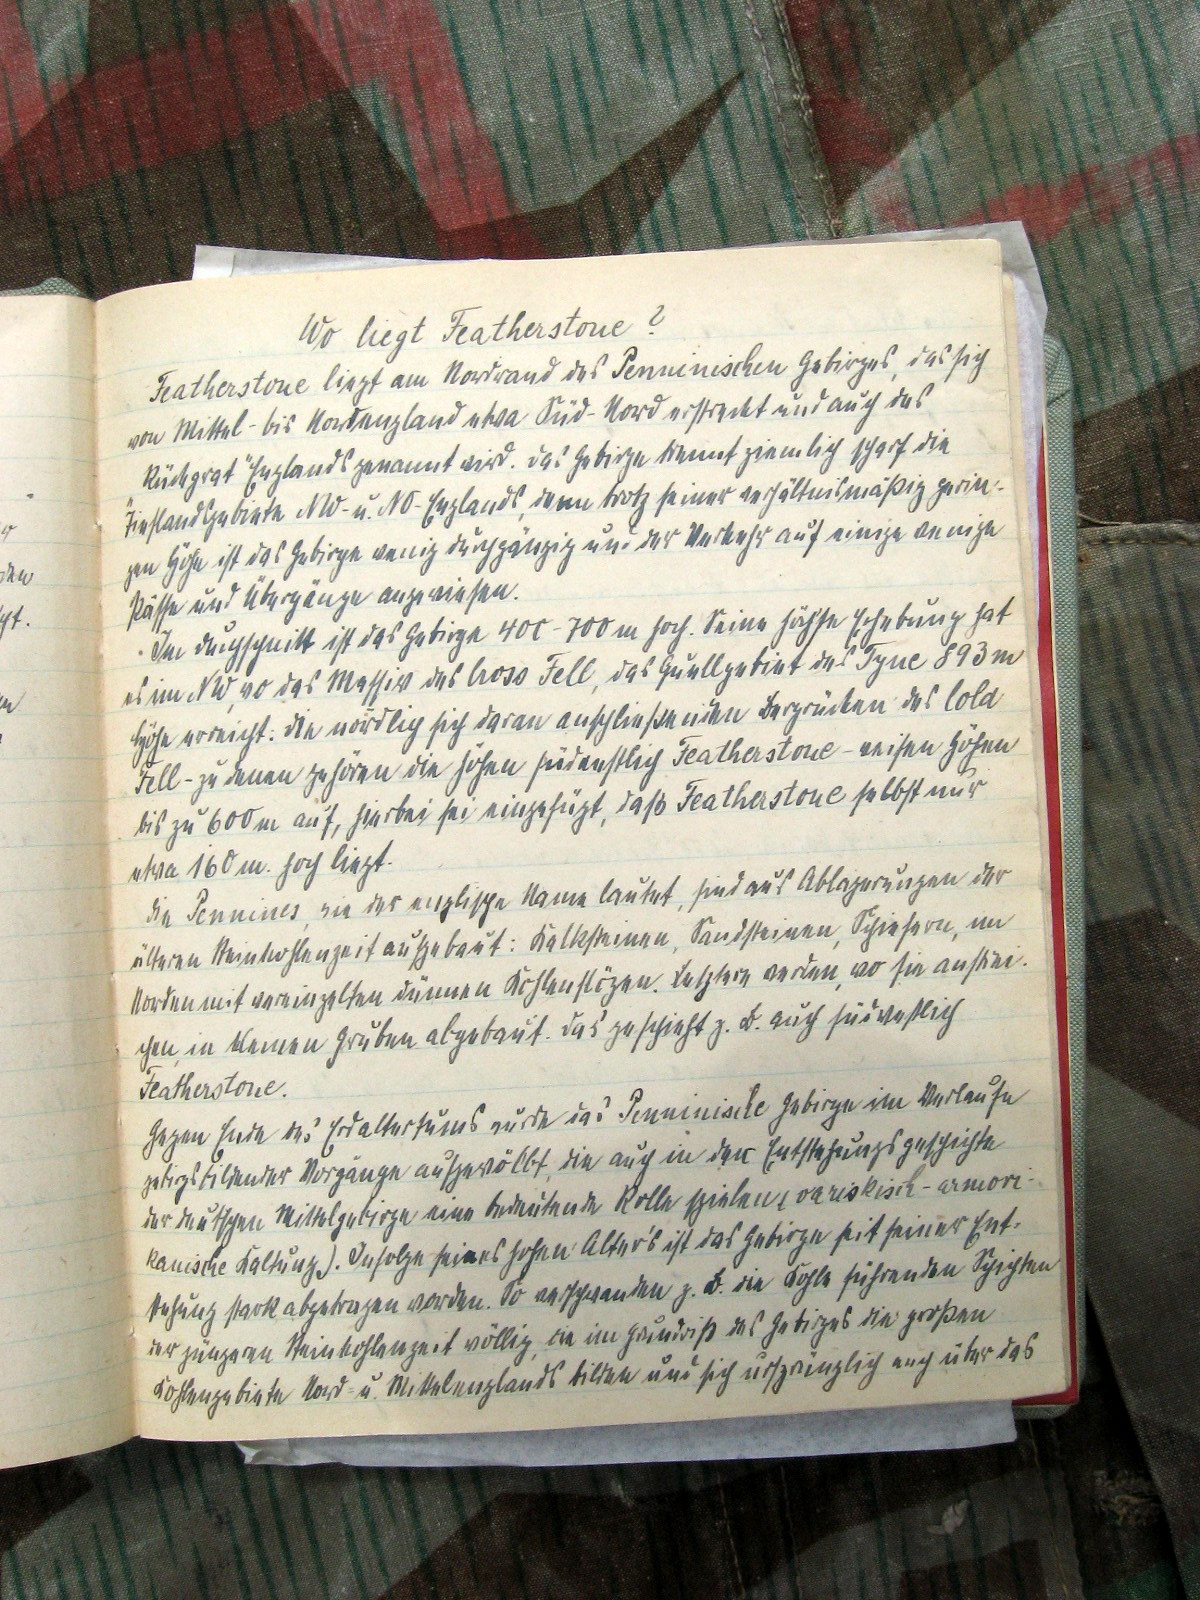 Wo liegt Featherstone?
Featherstone liegt am Nordrand des Penninischen Gebirges, das sich
von Mittel- bis Nordengland etwa Süd-Nord erstreckt und auch das
„Rückgrat" Englands genannt wird. Das Gebirge trennt ziemlich scharf die
Tieflandgebiete NW- u. NO-Englands, denn trotz seiner verhältnismäßig gerin-
gen Höhe ist das Gebirge wenig durchgängig und der Verkehr auf einige wenige
Pässe und Übergänge angewiesen.
Im Durchschnitt ist das Gebirge 400-700 m hoch. Seine höchste Erhebung hat
es im NW, wo das Massiv des Cross Fell, das Quellgebiet des Tyne 893 m
Höhe erreicht. Die nördlich sich daran anschließenden Bergrücken des Cold
Fell - zu denen gehören die Höhen südwestlich Featherstone - weisen Höhen
bis zu 600 m auf, hierbei sei eingefügt, daß Featherstone selbst nur
etwa 160 m. hoch liegt.
Die Pennines, wie der englische Name lautet, sind aus Ablagerungen der
älteren Steinkohlenzeit aufgebaut: Kalksteinen, Sandsteinen, Schiefern, im
Norden mit vereinzelten dünnen Kohlenflözen. Letztere werden, wo sie ausstrei-
chen, in kleinen Gruben abgebaut. Das geschieht z. B. auch südwestlich
Featherstone.
Gegen Ende des Erdaltertums wurde das Penninische Gebirge im Verlaufe
gebirgsbildender Vorgänge aufgewölbt, die auch in der Entstehungsgeschichte
der deutschen Mittelgebirge eine bedeutende Rolle spielen (variskisch-armori-
kanische Faltung). Infolge seines hohen Alters ist das Gebirge seit seiner Ent-
stehung stark abgetragen worden. So verschwanden z. B. die Kohle führenden Schichten
der jüngeren Steinkohlenzeit völlig, die im Grundriß des Gebirges die großen
Kohlengebiete Nord- u. Mittelenglands bilden und sich ursprünglich auch über das